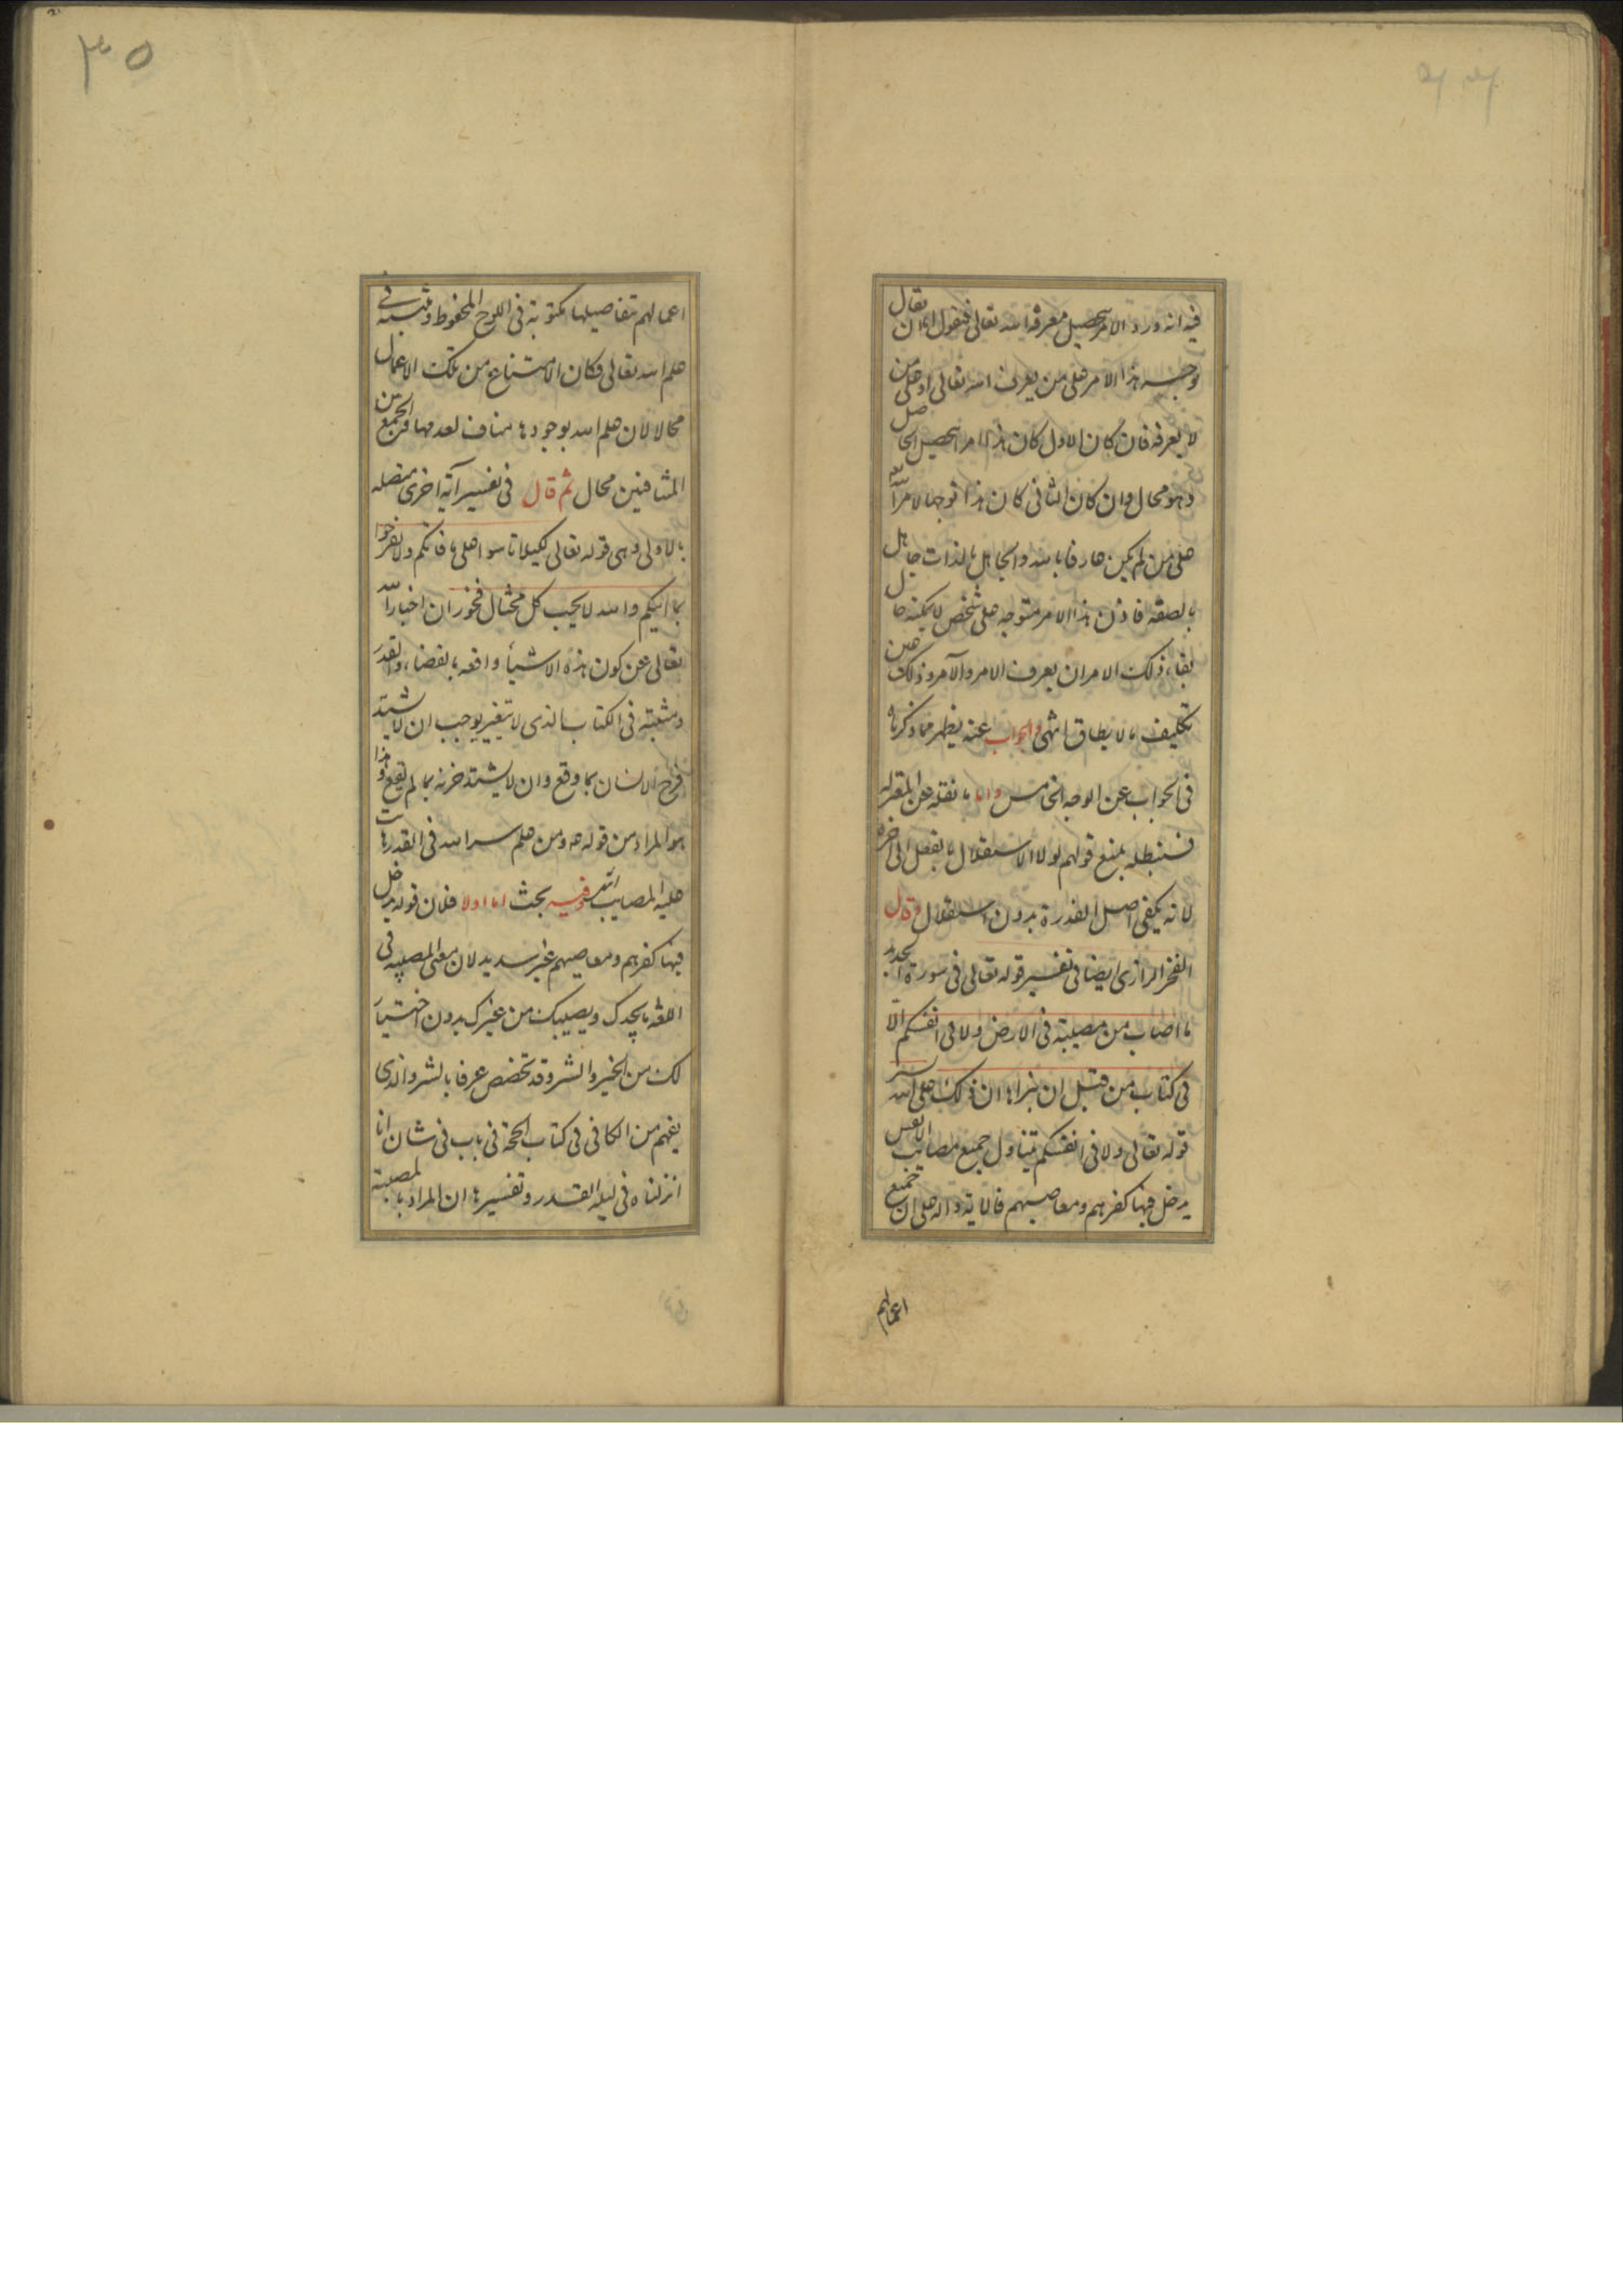 فيه انه ورد الامر بتحصيل معرفة الله تعالى فنقول اما ان يقال
توجيه هذا الامر على من يعرف الله تعالى او على من
لا يعرفه فان كان الاول كان هذا امرا بتحصيل الحاصل
و هو محال وان كان الثانى كان هذا توجها لامر الله
على من لم يكن عارفا بالله والجاهل بالذات جاهل
بالصفة فاذن هذا الامر متوجه على شخص لا يمكنه حال
بقاء ذلك الامر ان يعرف الامر والآمر وذلك عين
تكليف ما لا يطاق انتهى والجواب عنه يظهر مما ذكرناه
فى الجواب عن الوجه الخامس واما ما نقله عن المعتزلة
فنبطله بمنع قولهم لولا الاستقلال بالفعل الى آخره
لانه يكفى اصل القدرة بدون استقلال وقال
الفخر الرازى ايضا فى تفسير قوله تعالى فى سورة الحديد
ما اصاب من مصيبة فى الارض ولا فى انفسكم الّا
فى كتاب من قبل ان نبراها ان ذلك على الله يسير
قوله تعالى ولا فى انفسكم يتناول جميع مصائب الانفس
يدخل فيها كفرهم ومعاصيهم فالاية دالة على ان جميع
اعمالهم
٣٥
اعمالهم بتفاصيلها مكتوبة فى اللوح المحفوظ ومثبتة فى
علم الله تعالى فكان الامتناع من تلك الاعمال
محالا لان علم الله بوجودها مناف لعدمها والجمع بين
المتنافيين محال ثم قال فى تفسير آية اخرى متصلة
بالاولى وهى قوله تعالى لكيلا تاسوا على ما فاتكم ولا تفرحوا
بما اتيكم والله لا يحب كل مختال فخور ان اخبار الله
تعالى عن كون هذه الاشياء واقعة بالقضاء والقدر
ومثبتة فى الكتاب الذى لا يتغير يوجب ان لا يشتد
فرح الانسان بما وقع وان لا يشتد حزنه بما لم يقع وهذا
هو المراد من قوله ع ومن علم سر الله فى القدر هانت
عليه المصايب انتهى وفيه بحث اما اولا فلان قوله يدخل
فيها كفرهم ومعاصيهم غير سديد لان معنى المصيبة فى
اللغة ما يجدك ويصيبك من غيرك بدون اختيار
لك من الخير والشر وقد تخصص عرفا بالشر والذى
يفهم من الكافى فى كتاب الحجة فى باب فى شان انا
انزلناه فى ليلة القدر وتفسيرها ان المراد بالمصيبة